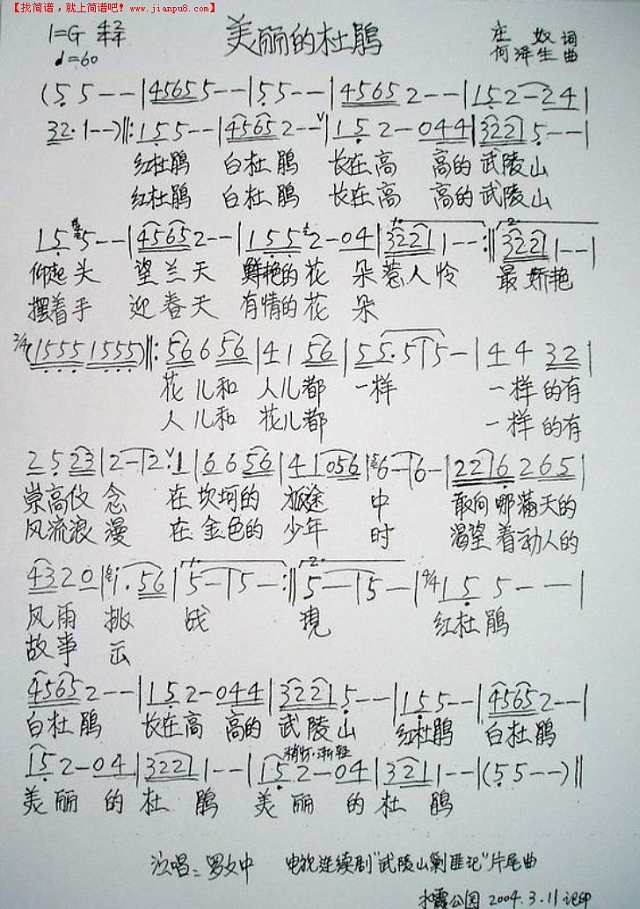 【找简谱,就上简谱吧!】www.jianpu8.com
1=G 美丽的杜鹃 庄奴 词
♩=60 何泽生 曲
(5 5 - - | 4565 5 - - | 5 5 - - | 4565 2 - - | 1 5 2 - 2 4 |
32· 1 - -) ‖: 1 5 5 - - | 4565 2 - - ∨ | 1 5 2 - 0 4 4 | 3221 5 - - |
红杜鹃 白杜鹃 长在高 高的武陵山
红杜鹃 白杜鹃 长在高 高的武陵山
1 5 5 - - | 4565 2 - - | 1 5 5 2 - 0 4 | 3221 1 - - :‖ 3221 1 - - |
仰起头 望兰天 鲜艳的花 朵惹人怜 最娇艳
摆着手 迎春天 有情的花 朵
2/4 (1555 1555) ‖: 56 6 56 | 4 1 56 | 55· 5 | 5 - | 4 4 32 |
花儿和 人儿都 一样 一样的有
人儿和 花儿都 一样的有
2 5 23 | 2 - | 2 ∨ 1 | 6 6 56 | 4 1056 | 6 - | 6 - | 2216 265 |
崇高仪念 在坎坷的 旅途 中 敢向哪满天的
风流浪漫 在金色的 少年 时 渴望着动人的
432 0 | 1· 56 | 5 - | 5 - :‖ 5 - | 5 - | 4/4 1 5 5 - - |
风雨 挑 战 現 红杜鹃
故事 云
4565 2 - - | 1 5 2 - 0 4 4 | 3221 5 - - | 1 5 5 - - | 4565 2 - - |
白杜鹃 长在高 高的 武陵山 红杜鹃 白杜鹃
稍慢·渐轻
1 5 2 - 0 4 | 3221 1 - - | 1 5 2 - 0 4 | 3221 1 - - | (5 5 - -) ‖
美丽 的杜鹃 美丽 的杜鹃
演唱:罗文中 电视连续剧"武陵山剿匪记"片尾曲
公园 2004.3.11 记印